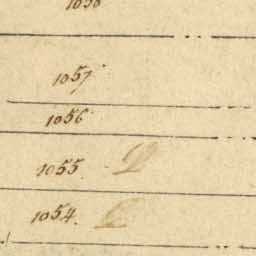 1058
1057
1056
1055. D
1054.